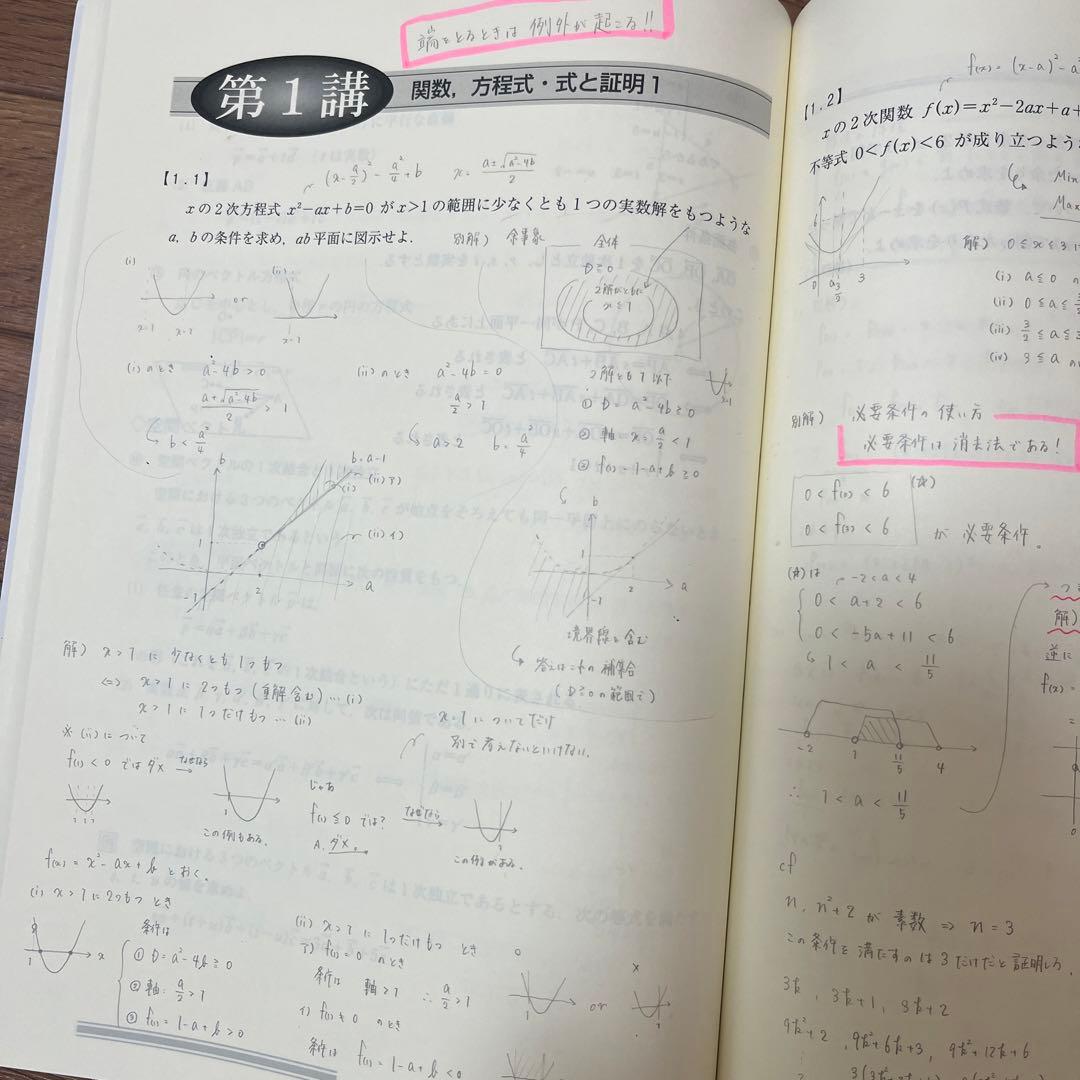 端をとるときは 例外が起こる!!
第1講 関数,方程式・式と証明1
【1.1】
(x-a/2)²-a²/4+b x=(a±√(a²-4b))/2
xの2次方程式 x²-ax+b=0 が x>1 の範囲に少なくとも1つの実数解をもつような
a, b の条件を求め, ab 平面に図示せよ.
別解) 余事象
全体
D≧0
2解がともに
x≦1
(i)
or
(ii)
(i)のとき a²-4b>0
(a+√(a²-4b))/2 > 1
b<a²/4
(ii)のとき a²-4b=0
a/2>1
a>2 b=a²/4
2解とも1以下
① D=a²-4b≧0
② 軸 x=a/2<1
③ f(1)=1-a+b≧0
b
b=a-1
(ii)ア)
(i)
(ii)イ)
1
2
a
b
1
2
a
-1
境界線を含む
答えはこれの補集合
(D≧0の範囲で)
解) x>1に少なくとも1つもつ
⇔ x>1に2つもつ(重解含む)…(i)
x>1に1つだけもつ…(ii)
x=1についてだけ
別で考えないといけない。
※(ii)について
f(1)<0 ではダメ なぜなら
この例もある.
じゃあ
f(1)≦0 では?
A.ダメ。
なぜなら
この例がある.
f(x)=x²-ax+b とおく.
(i) x>1に2つもつ とき
条件は
① D=a²-4b≧0
② 軸: a/2>1
③ f(1)=1-a+b>0
(ii) x>1に1つだけもつ とき
ア) f(1)=0 のとき
条件は 軸>1 ∴ a/2>1
イ) f(1)≠0 のとき
条件は f(1)=1-a+b<0
or
f(x)=(x-a)²-a²
【1.2】
xの2次関数 f(x)=x²-2ax+a+
不等式 0<f(x)<6 が成り立つよう
Min
Max
6
0
a
3/2
3
解) 0≦x≦3
(i) a≦0
(ii) 0≦a≦
(iii) 3/2≦a≦
(iv) 3≦a の
別解) 必要条件の使い方
必要条件は消去法である!
0<f(0)<6
0<f(3)<6
(☆)
が 必要条件。
(☆)は
-2<a<4
0<a+2<6
0<-5a+11<6
1<a<11/5
-2 1 11/5 4
∴ 1<a<11/5
解)
逆に
f(x)=
cf
n, n²+2 が 素数 ⇒ n=3
この条件を満たすのは3だけだと証明しろ.
3k, 3k+1, 3k+2
9k²+2, 9k²+6k+3, 9k²+12k+6